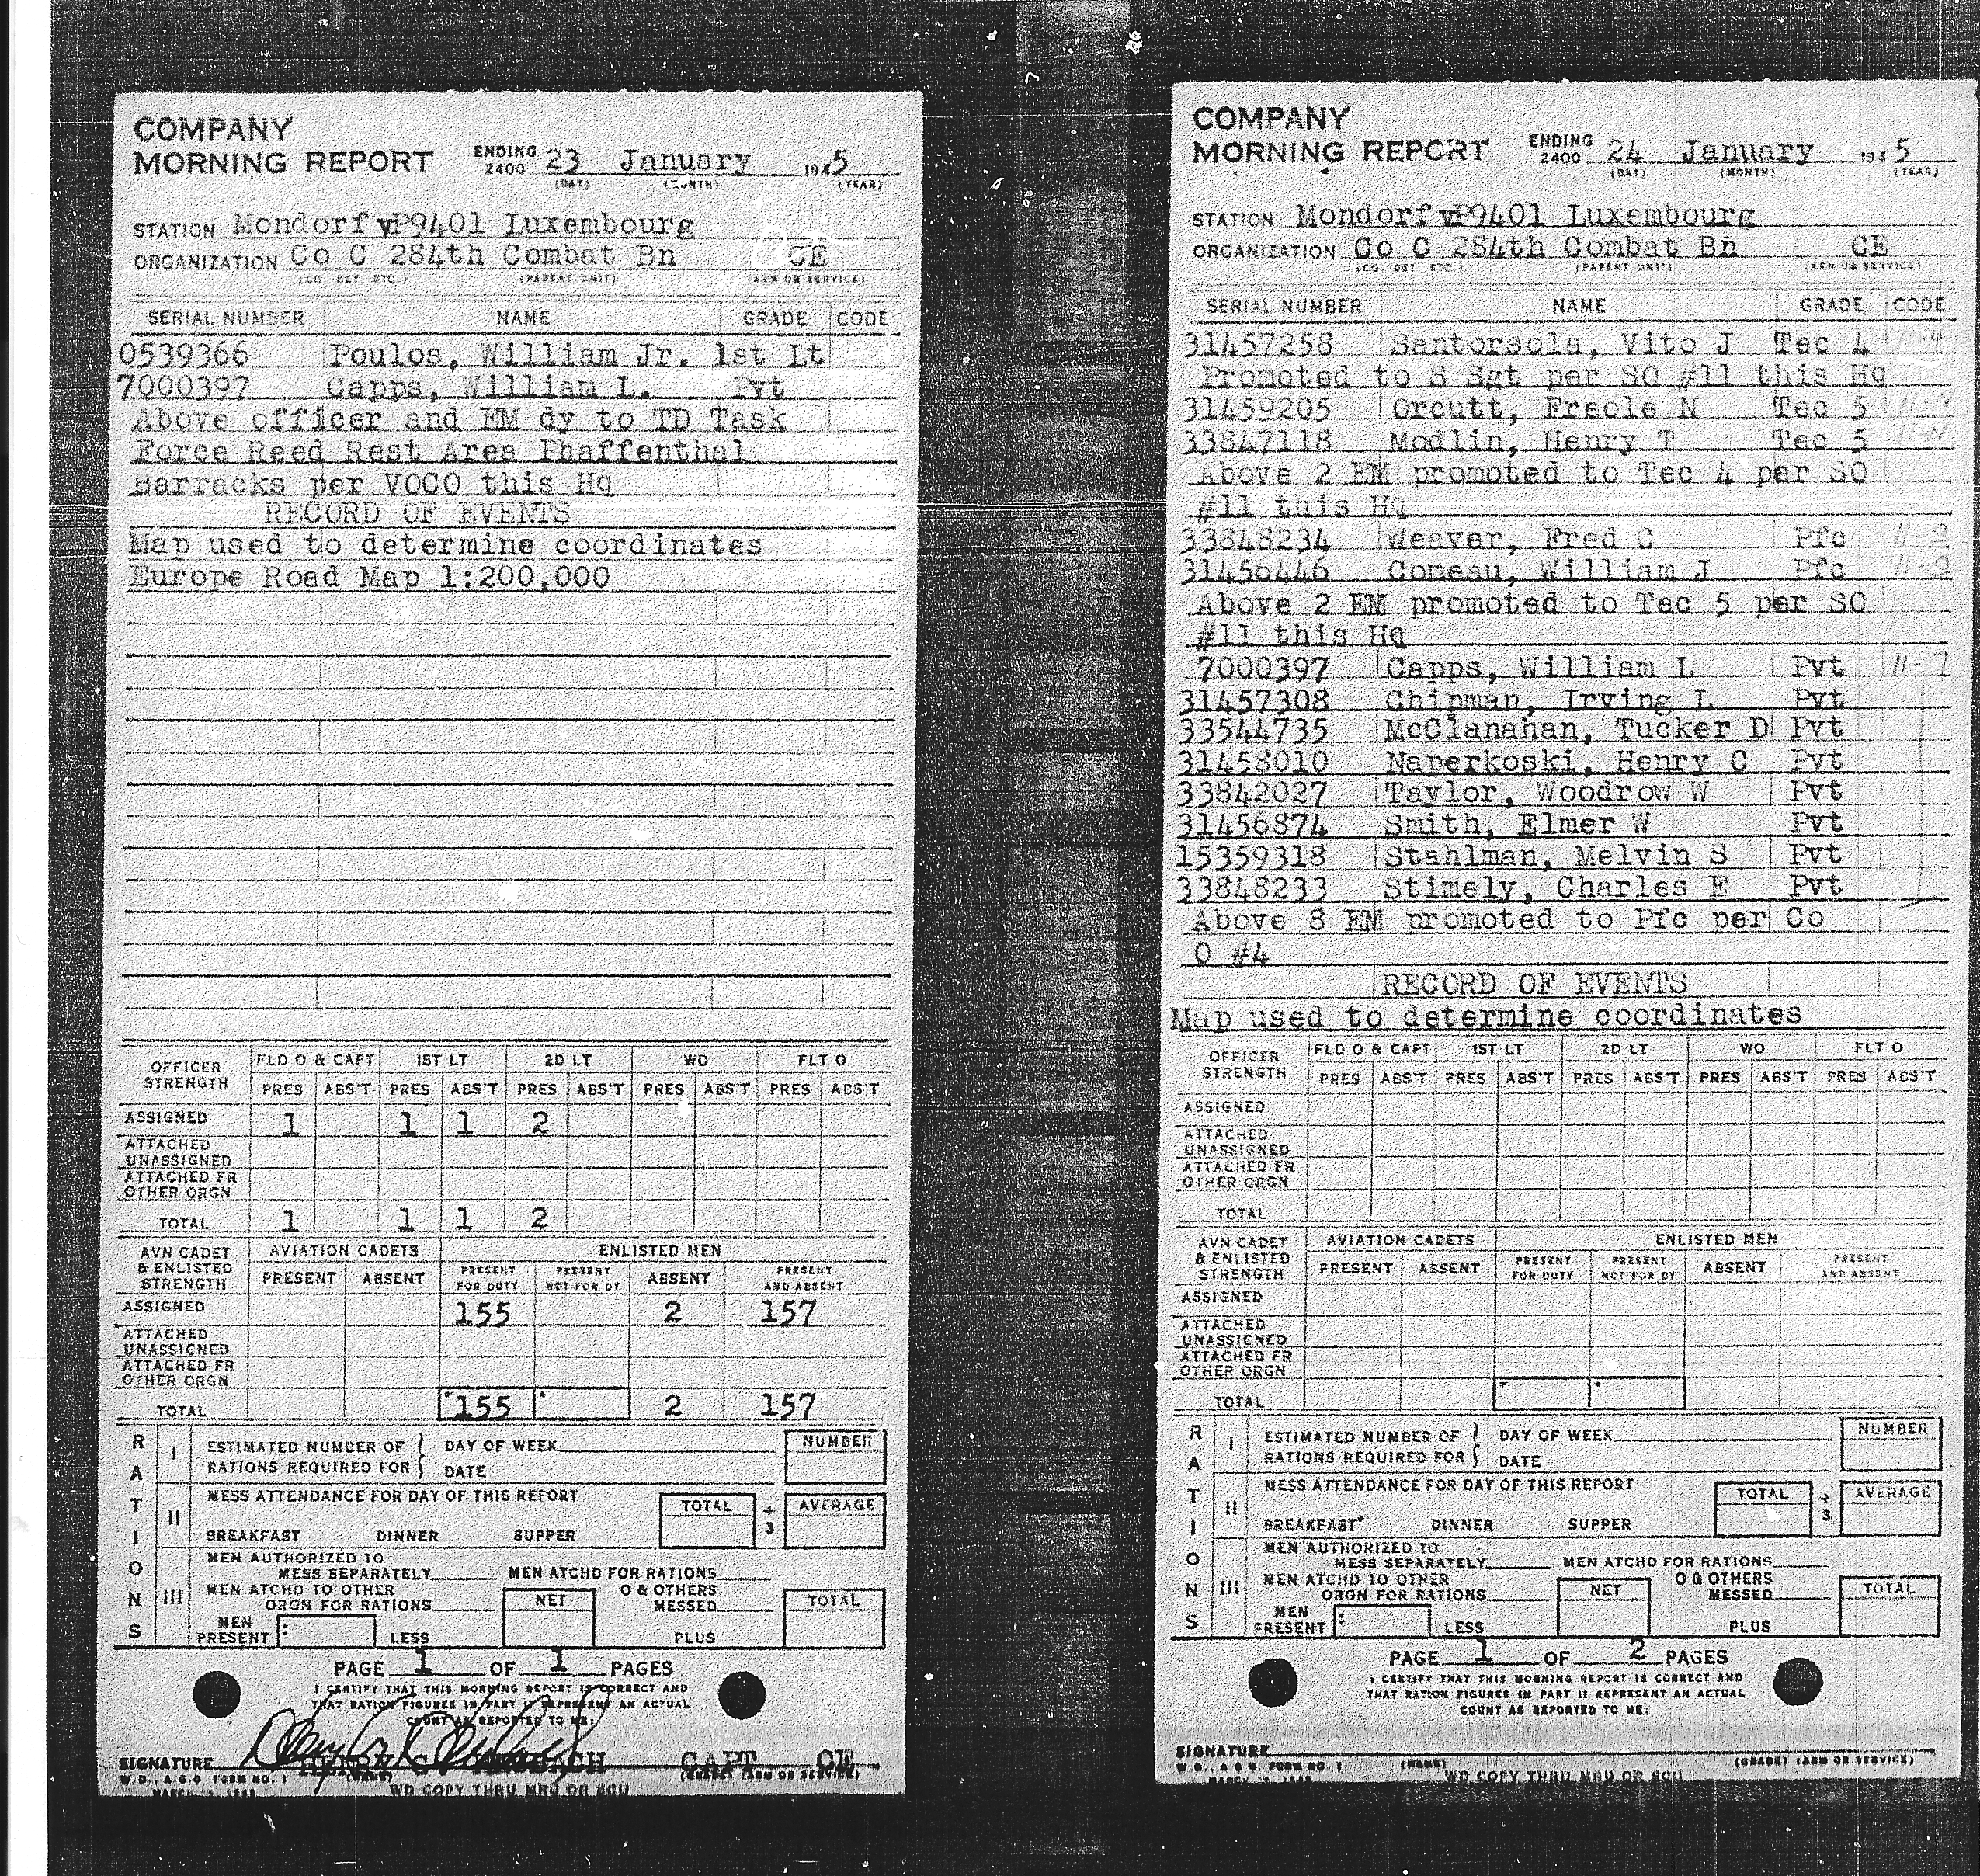 COMPANY
MORNING REPORT ENDING 2400 23 January 1945
(DAY) (MONTH) (YEAR)
STATION Mondorf vP9401 Luxembourg
ORGANIZATION Co C 284th Combat Bn CE
(CO DET ETC.) (PARENT UNIT) (ARM OR SERVICE)
SERIAL NUMBER NAME GRADE CODE
0539366 Poulos, William Jr. 1st Lt
7000397 Capps, William L. Pvt
Above officer and EM dy to TD Task
Force Reed Rest Area Phaffenthal
Barracks per VOCO this Hq
RECORD OF EVENTS
Map used to determine coordinates
Europe Road Map 1:200,000
OFFICER STRENGTH FLD O & CAPT 1ST LT 2D LT WO FLT O
PRES ABS'T PRES ABS'T PRES ABS'T PRES ABS'T PRES ABS'T
ASSIGNED 1 1 1 2
ATTACHED UNASSIGNED
ATTACHED FR OTHER ORGN
TOTAL 1 1 1 2
AVN CADET & ENLISTED STRENGTH AVIATION CADETS ENLISTED MEN
PRESENT ABSENT PRESENT FOR DUTY PRESENT NOT FOR DY ABSENT PRESENT AND ABSENT
ASSIGNED 155 2 157
ATTACHED UNASSIGNED
ATTACHED FR OTHER ORGN
TOTAL 155 2 157
RATIONS
I ESTIMATED NUMBER OF DAY OF WEEK NUMBER
RATIONS REQUIRED FOR DATE
II MESS ATTENDANCE FOR DAY OF THIS REPORT TOTAL ÷ 3 AVERAGE
BREAKFAST DINNER SUPPER
III MEN AUTHORIZED TO
MESS SEPARATELY MEN ATCHD FOR RATIONS
MEN ATCHD TO OTHER NET O & OTHERS TOTAL
ORGN FOR RATIONS MESSED
MEN PRESENT LESS PLUS
PAGE 1 OF 1 PAGES
I CERTIFY THAT THIS MORNING REPORT IS CORRECT AND
THAT RATION FIGURES IN PART II REPRESENT AN ACTUAL
COUNT AS REPORTED TO ME:
SIGNATURE CAPT CE
W.D., A.G.O. FORM NO. 1 (NAME) (GRADE) (ARM OR SERVICE)
WD COPY THRU MRU OR SCU
COMPANY
MORNING REPORT ENDING 2400 24 January 1945
(DAY) (MONTH) (YEAR)
STATION Mondorf vP9401 Luxembourg
ORGANIZATION Co C 284th Combat Bn CE
(CO DET ETC.) (PARENT UNIT) (ARM OR SERVICE)
SERIAL NUMBER NAME GRADE CODE
31457258 Santorsola, Vito J Tec 4
Promoted to S Sgt per SO #11 this Hq
31459205 Orcutt, Freole N Tec 5 11-N
33847118 Modlin, Henry T Tec 5 11-N
Above 2 EM promoted to Tec 4 per SO
#11 this Hq
33848234 Weaver, Fred C Pfc
31456446 Comeau, William J Pfc
Above 2 EM promoted to Tec 5 per SO
#11 this Hq
7000397 Capps, William L Pvt 11-7
31457308 Chipman, Irving L Pvt
33544735 McClanahan, Tucker D Pvt
31458010 Naperkoski, Henry C Pvt
33842027 Taylor, Woodrow W Pvt
31456874 Smith, Elmer W Pvt
15359318 Stahlman, Melvin S Pvt
33848233 Stimely, Charles E Pvt
Above 8 EM promoted to Pfc per Co
O #4
RECORD OF EVENTS
Map used to determine coordinates
OFFICER STRENGTH FLD O & CAPT 1ST LT 2D LT WO FLT O
PRES ABS'T PRES ABS'T PRES ABS'T PRES ABS'T PRES ABS'T
ASSIGNED
ATTACHED UNASSIGNED
ATTACHED FR OTHER ORGN
TOTAL
AVN CADET & ENLISTED STRENGTH AVIATION CADETS ENLISTED MEN
PRESENT ABSENT PRESENT FOR DUTY PRESENT NOT FOR DY ABSENT PRESENT AND ABSENT
ASSIGNED
ATTACHED UNASSIGNED
ATTACHED FR OTHER ORGN
TOTAL
RATIONS
I ESTIMATED NUMBER OF DAY OF WEEK NUMBER
RATIONS REQUIRED FOR DATE
II MESS ATTENDANCE FOR DAY OF THIS REPORT TOTAL ÷ 3 AVERAGE
BREAKFAST DINNER SUPPER
III MEN AUTHORIZED TO
MESS SEPARATELY MEN ATCHD FOR RATIONS
MEN ATCHD TO OTHER NET O & OTHERS TOTAL
ORGN FOR RATIONS MESSED
MEN PRESENT LESS PLUS
PAGE 1 OF 2 PAGES
I CERTIFY THAT THIS MORNING REPORT IS CORRECT AND
THAT RATION FIGURES IN PART II REPRESENT AN ACTUAL
COUNT AS REPORTED TO ME:
SIGNATURE
W.D., A.G.O. FORM NO. 1 (NAME) (GRADE) (ARM OR SERVICE)
WD COPY THRU MRU OR SCU